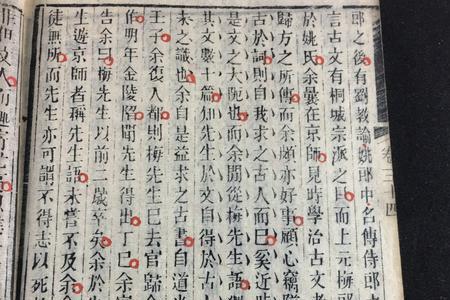 郎之後有劉教諭姚郎中名傳侍郎
言古文有桐城宗派之目而上元梅郎
於姚氏余曩在京師見時學治古文者
歸方之所傳而余頗亦好事顧心竊隘
古於詞則自我求之古人而已奚近時
是文之大阨也而余閒從梅先生語獨
其文數十篇知先生於文自得於古人
未之識也余自是益求之古書自道
王子余復入都則梅先生已去官歸金
作明年金陵陷聞先生得出丁巳余
告余曰梅先生以前二歲卒矣余於
生遊京師者稱先生語未嘗不及余
徒無所而先生亦可謂不得志以死